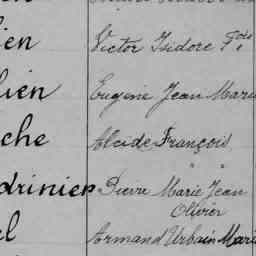 ien Victor Isidore Fois
lien Eugène Jean Marie
che Alcide François
" "
drinier Pierre Marie Jean
Olivier
el Armand Urbain Mari